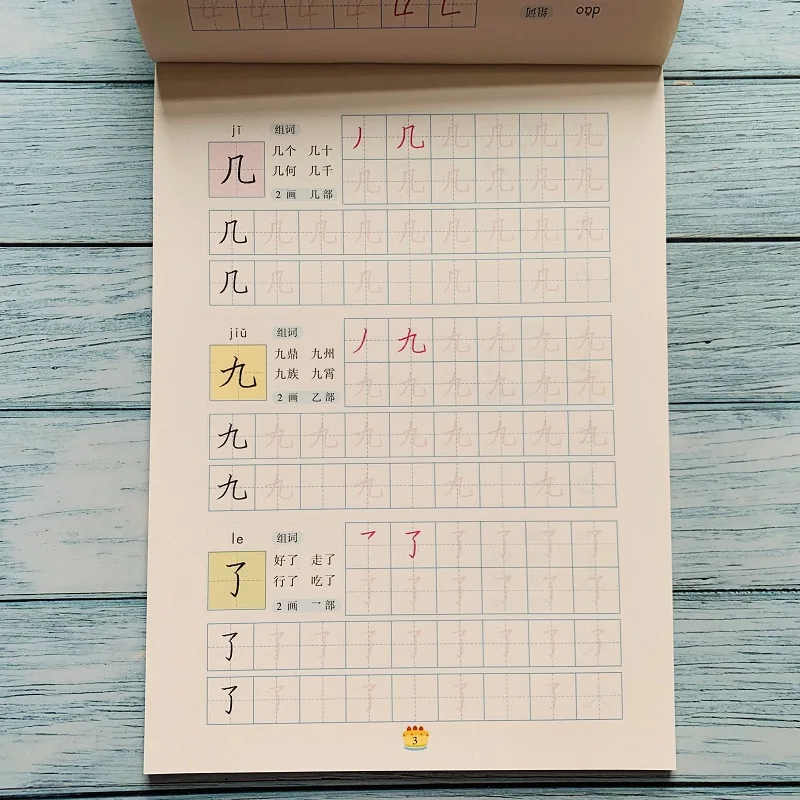 组词 dāo
jī 组词
几 几个 几十
几何 几千
2画 几部
丿 几 几 几 几 几
几 几 几 几 几 几
几 几 几 几 几 几 几 几 几
几 几 几 几 几
jiǔ 组词
九 九鼎 九州
九族 九霄
2画 乙部
丿 九 九 九 九 九
九 九 九 九 九 九
九 九 九 九 九 九 九 九 九
九 九 九 九 九
le 组词
了 好了 走了
行了 吃了
2画 乛部
乛 了 了 了 了 了
了 了 了 了 了 了
了 了 了 了 了 了 了 了 了
了 了 了 了 了
3